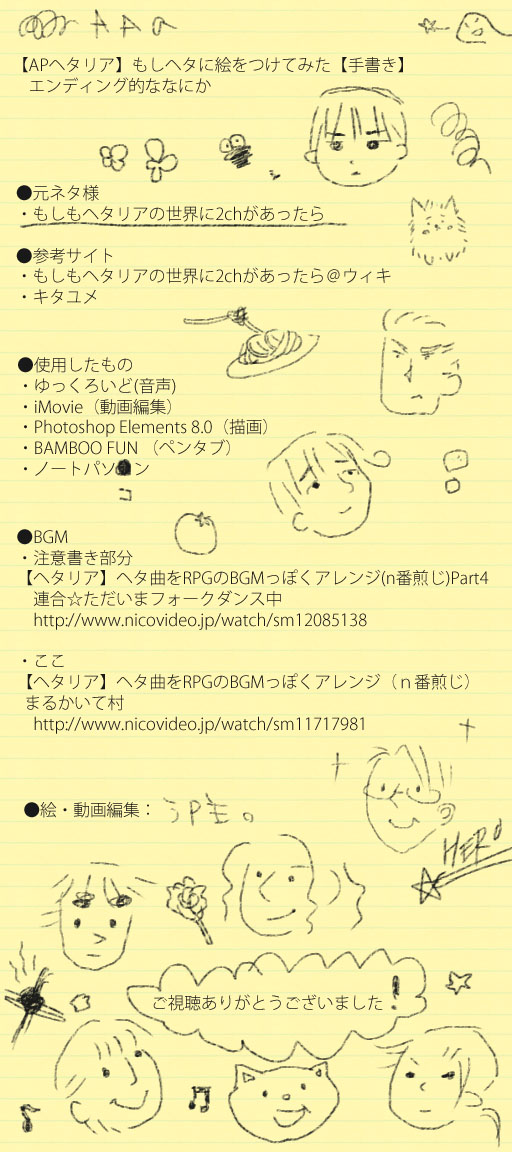 【APヘタリア】もしヘタに絵をつけてみた【手書き】
エンディング的ななにか
●元ネタ様
・もしもヘタリアの世界に2chがあったら
●参考サイト
・もしもヘタリアの世界に2chがあったら＠ウィキ
・キタユメ
●使用したもの
・ゆっくろいど(音声)
・iMovie（動画編集）
・Photoshop Elements 8.0（描画）
・BAMBOO FUN （ペンタブ）
・ノートパソコン
●BGM
・注意書き部分
【ヘタリア】ヘタ曲をRPGのBGMっぽくアレンジ(n番煎じ)Part4
連合☆ただいまフォークダンス中
http://www.nicovideo.jp/watch/sm12085138
・ここ
【ヘタリア】ヘタ曲をRPGのBGMっぽくアレンジ（ｎ番煎じ）
まるかいて村
http://www.nicovideo.jp/watch/sm11717981
●絵・動画編集：うP主。
HERO
ご視聴ありがとうございました！